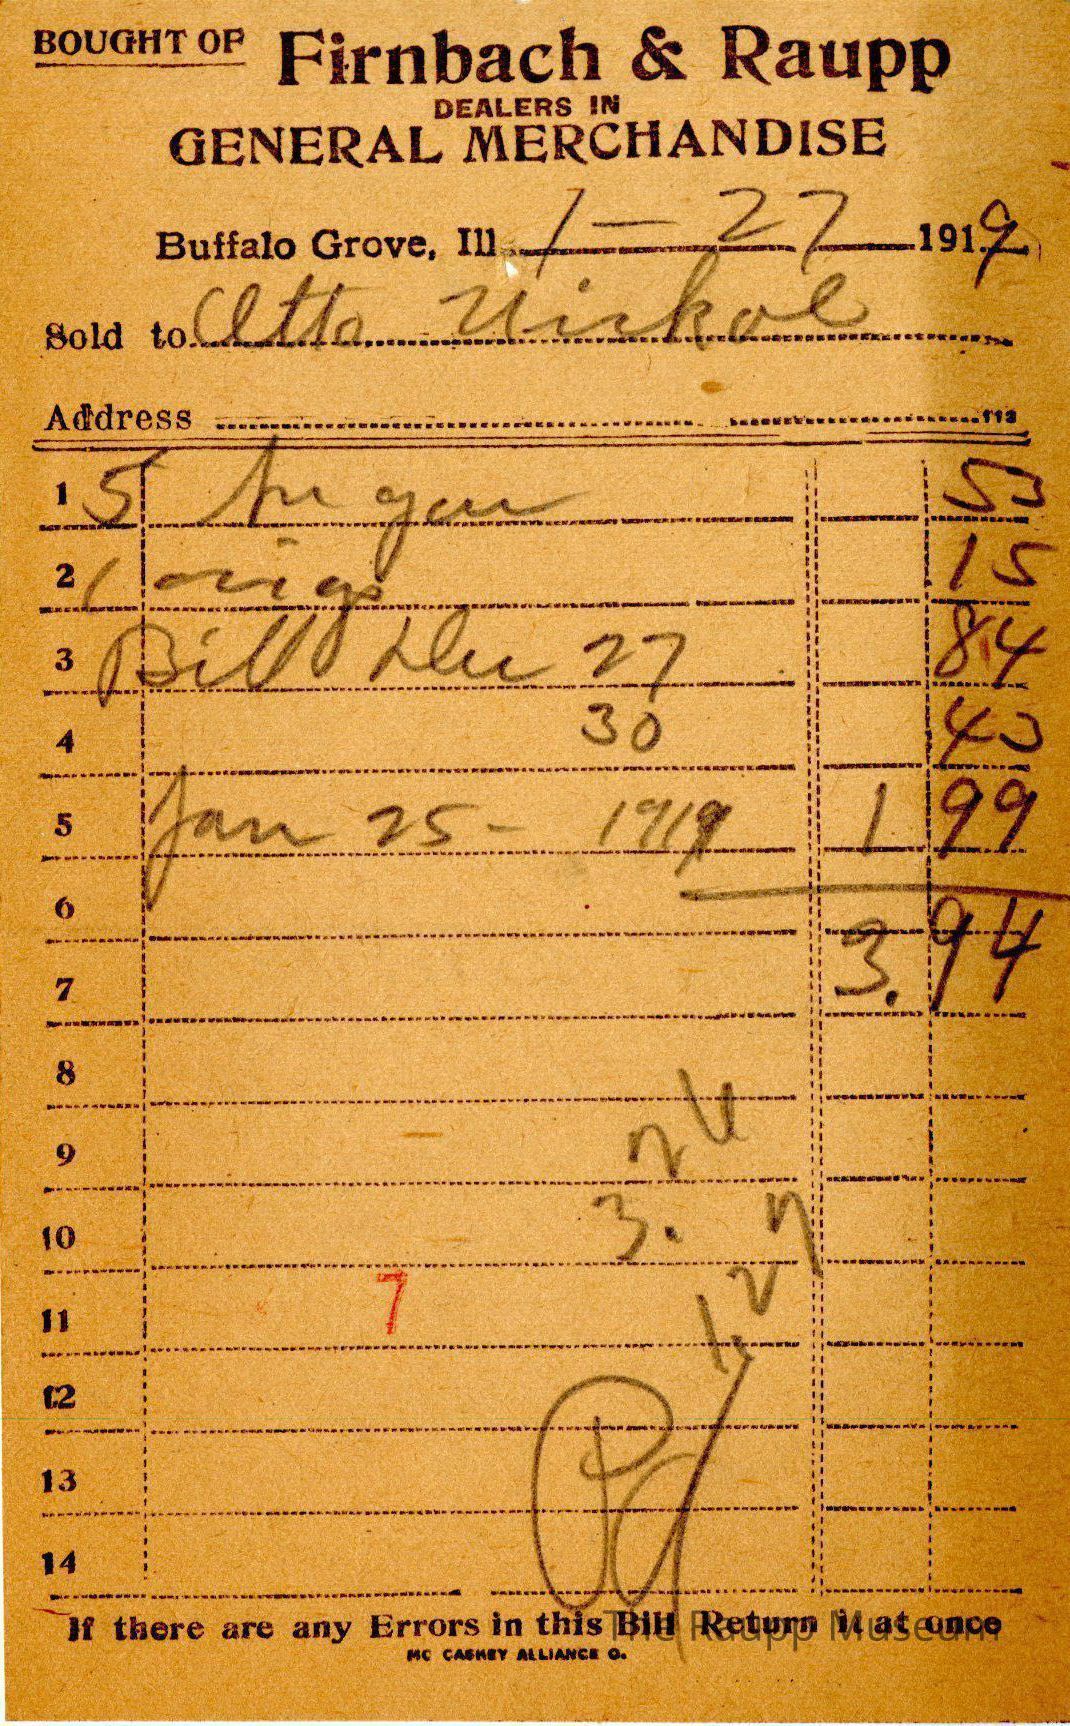 BOUGHT OF Firnbach & Raupp
DEALERS IN
GENERAL MERCHANDISE
Buffalo Grove, Ill. 1 - 27 1919
Sold to Otto Niskol
Address 113
1 5 53
2 1 15
3 Bill 27 84
4 30 43
5 Jan 25 - 1919 1 99
6
7 3.94
8
9
10 3.
11 7
12
13
14
If there are any Errors in this Bill Return it at once
The Raupp Museum
MC CASKEY ALLIANCE O.